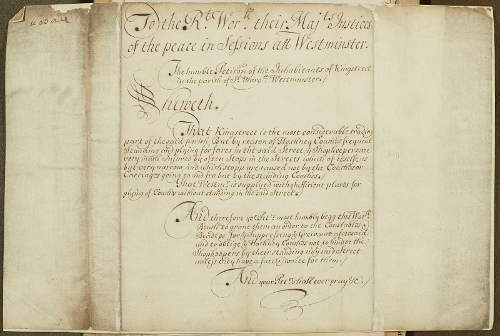 To the Rt. Worll. their Majts. Justices
of the peace in Sessions att Westminster.
The humble Petition of the Inhabitants of Kingstreet
in the parish of St. Margts. Westminster./
Sheweth./
That Kingstreet is the most considerable trading
part of the said parish, but by reason of Hackney Coaches frequent
standing and plying for fares in the said Street ye Shopkeepers are
very much Injured by often Stops in the Street which of itselfe is
but very narrow and which stopps are caused not by the Coaches or
Carriages going to and fro but by the standing Coaches./
That Westmr. is supplyed with sufficient places for
plying of Coaches without standing in the said Street./
And therefore yor. Petrs. most humbly begg this Worll.
Bench to grant them an order to the Constables &
Beadles for ye suppressing ye Grievance aforesaid
and to oblige ye Hackney Coaches not to hinder the
Shopkeepers by their standing in ye said Street
unless they have a fare to waite for them./
And your Petrs. shall ever pray &c./